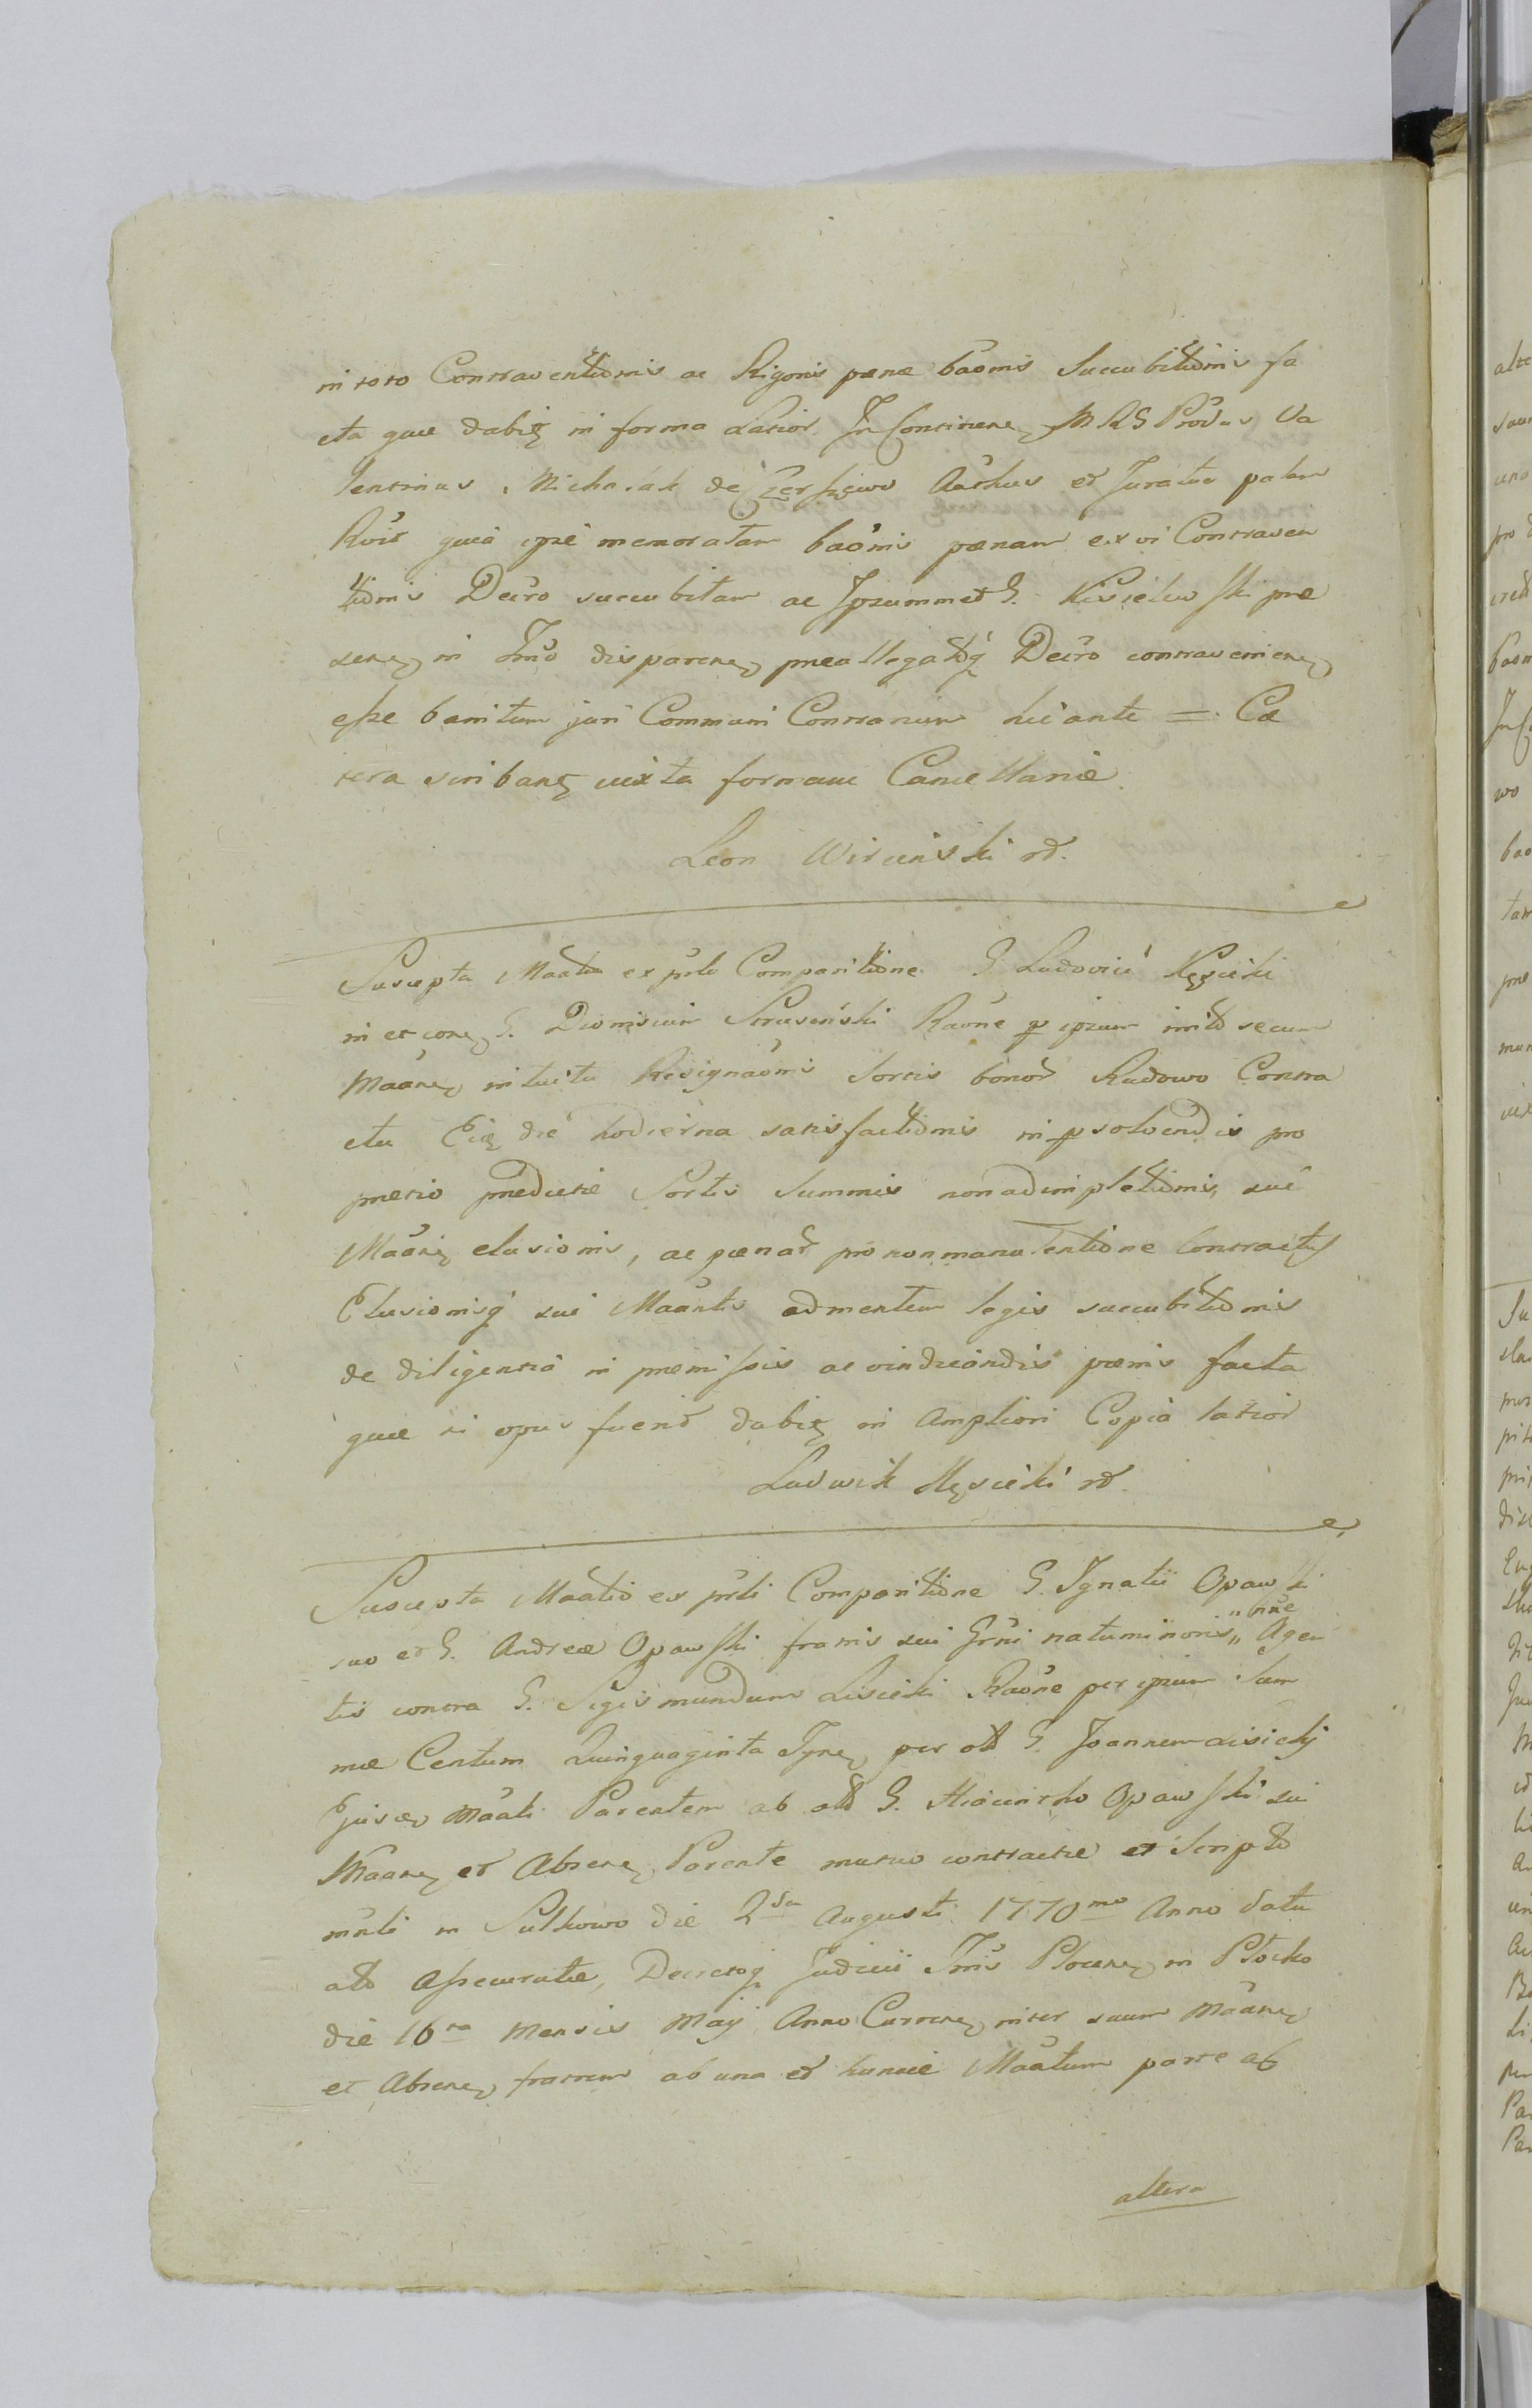 in toto Contraventionis ac Rigoris pænæ baõnis Succubitionis fa
cta quæ dabiꝫ in forma Latior. In Continenꝫ MRS Provđus Va
lentinus Michalak de Acthus et Juratus palam
Rvit quia ipse memoratam baõnis pænam ex vi Contraven
tionis Decro succubitam ac Ipsummet G. Kisielewski præ
senꝫ in Tmô disparenꝫ præallegatoq̃ Decro contravenienꝫ
eſse banitum juri Communi Contrarium luciante =. Cæ
tera scribanꝫ juxta formam Cancellariæ.
Leon Wirciński mp.
Suscepta Maatio ex pñti Comparitione G. Ludovici Kęsicki
in et conꝫ G. Dionisium Strusiński Raõne ꝑ ipsum inito secum
Maanꝫ intuitu Resignaõnis Sortis bonoꝝ Rudowo Contra
ctu Eiꝫ die hodierna satisfactionis in ꝑsolvendis pro
pretio prædictæ Sortis Summis non adimpletionis, sui
Maanꝫ elusionis, ac pænaꝝ pro non manutentione Contractus
Elusionisq̃ sui Maantis ad mentem legis succubitionis
de diligentia in præmiſsis ac vindicandis pænis facta
quæ si opus fuerit dabiꝫ in Ampliori Copia latior
Ludwik Kęsicki mp.
Suscepta Maatio ex pñti Comparitione G. Ignatii Opawski
suo et G. Andreæ Opawski fratris sui Grni natu minoris „ nñe „ Agen
tis contra G. Sigismundum Lisicki Raõne per ipsum Sum
mæ Centum Quinquaginta Tynꝫ per olb G. Joannem Lisicki
Ejusꝫ Maati Parentem ab olb G. Hiacintho Opawski sui
Maanꝫ et Absenꝫ Parente mutuo contractæ et Scripto
mñli in Sulkowo die 2da Augusti 1770mo Anno datu
alb Aſsecuratæ, Decretoq̃ Judicii Tmis Plocenꝫ in Płocko
die 16ta Mensis Maij Anno Currenꝫ inter suum Maanꝫ
et Absenꝫ fratrem ab una et huncce Maatum parte ab
altera